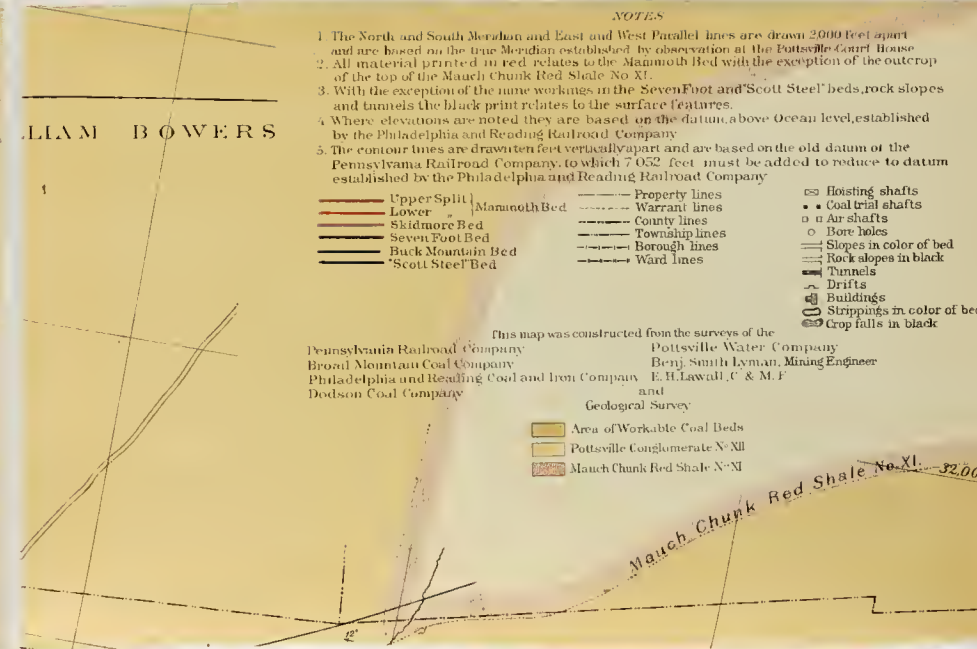 NOTES
1. The North and South Meridian and East and West Parallel lines are drawn 2,000 feet apart
and are based on the true Meridian established by observation at the Pottsville Court House
2. All material printed in red relates to the Mammoth Bed with the exception of the outcrop
of the top of the Mauch Chunk Red Shale No XI.
3. With the exception of the mine workings in the Seven Foot and "Scott Steel" beds, rock slopes
and tunnels the black print relates to the surface features.
4 Where elevations are noted they are based on the datum, above Ocean level, established
by the Philadelphia and Reading Railroad Company
5. The contour lines are drawn ten feet vertically apart and are based on the old datum of the
Pennsylvania Railroad Company, to which 7 052 feet must be added to reduce to datum
established by the Philadelphia and Reading Railroad Company
LLIAM BOWERS
Upper Split } Mammoth Bed
Lower „
Skidmore Bed
Seven Foot Bed
Buck Mountain Bed
"Scott Steel" Bed
Property lines
Warrant lines
County lines
Township lines
Borough lines
Ward lines
Hoisting shafts
Coal trial shafts
Air shafts
Bore holes
Slopes in color of bed
Rock slopes in black
Tunnels
Drifts
Buildings
Strippings in color of bed
Crop falls in black
This map was constructed from the surveys of the
Pennsylvania Railroad Company
Broad Mountain Coal Company
Philadelphia and Reading Coal and Iron Company
Dodson Coal Company
Pottsville Water Company
Benj. Smith Lyman, Mining Engineer
E. H. Lawall, C & M. E
and
Geological Survey
Area of Workable Coal Beds
Pottsville Conglomerate No XII
Mauch Chunk Red Shale No XI
Mauch Chunk Red Shale No. XI.
32,00
12°